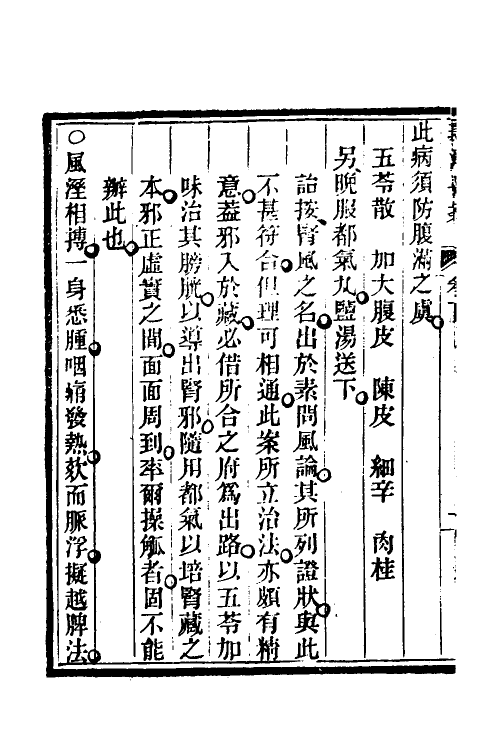 此病須防腹滿之虞
五苓散　加大腹皮　陳皮　細辛　肉桂
另晚服都氣丸鹽湯送下
詒按腎風之名出於素問風論其所列證狀與此
不甚符合但理可相通此案所立治法亦頗有精
意蓋邪入於藏必借所合之府爲出路以五苓加
味治其膀胱以導出腎邪隨用都氣以培腎藏之
本邪正虛實之間面面周到率爾操觚者固不能
辦此也
○風溼相搏一身悉腫咽痛發熱欬而脈浮擬越脾法